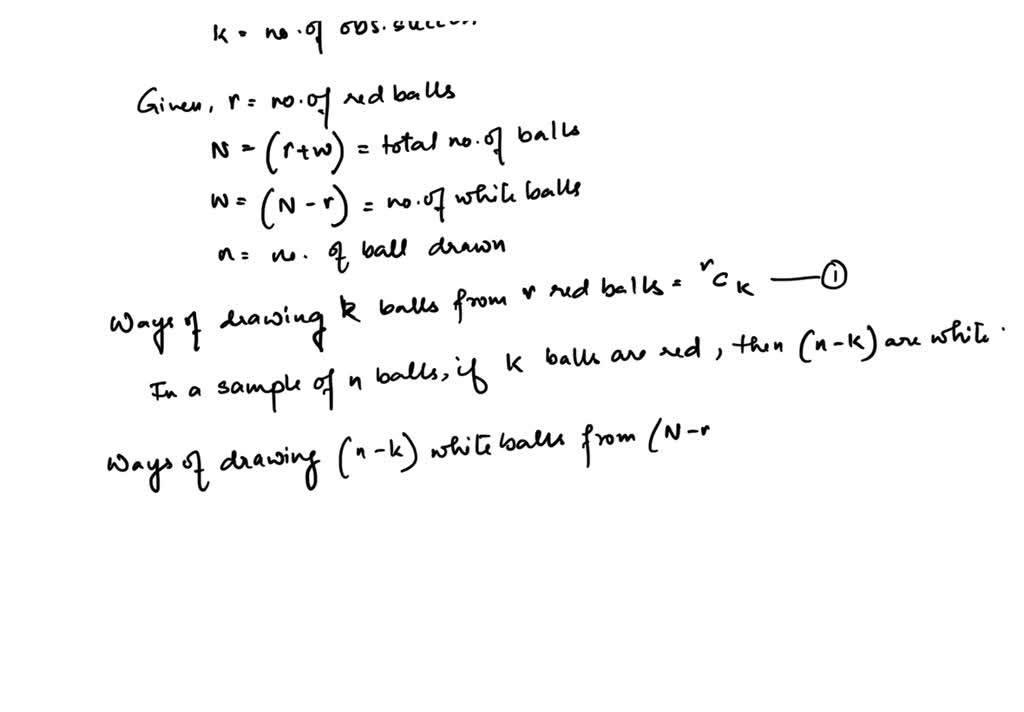 k = no. of obs.
Given, r = no. of red balls
N = (r+w) = total no. of balls
W = (N-r) = no. of white balls
n = no. of ball drawn
Ways of drawing k balls from r red balls = ʳCₖ —— ①
In a sample of n balls, if k balls are red, then (n-k) are white.
Ways of drawing (n-k) white balls from (N-r